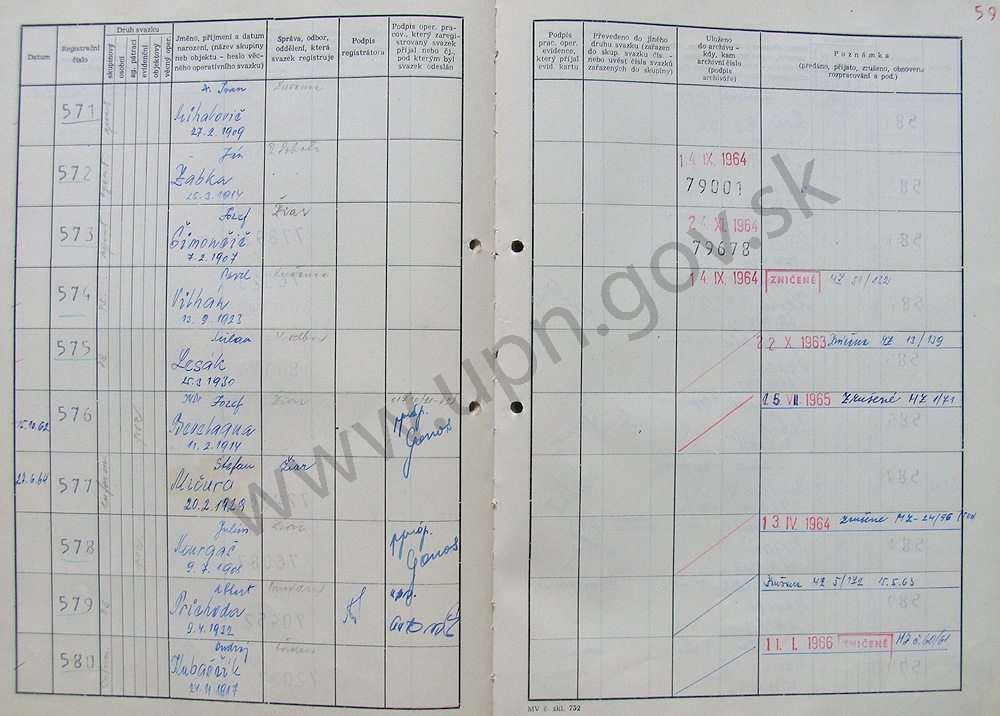 59
Datum
Registrační číslo
Druh svazku
skupinový
osobní
ag. pátrací
evidenční
objektový
věcný oper.
Jméno, příjmení a datum
narození, (název skupiny
neb objektu - heslo věc-
ného operativního svazku)
Správa, odbor,
oddělení, která
svazek registruje
Podpis
registrátora
Podpis oper. pracov.,
který zaregistrovaný svazek
přijal nebo čj.
pod kterým byl
svazek odeslán
Podpis
prac. oper.
evidence,
který přijal
evid. kartu
Převedeno do jiného
druhu svazku (zařazen
do skup. svazku čís.
nebo uvést čísla svazků
zařazených do skupiny)
Uloženo
do archivu -
kdy, kam
archivní číslo
(podpis
archiváře)
Poznámka
(předáno, přijato, zrušeno, obnoveno
rozpracování a pod.)
571
Dr. Ivan
Mihalovič
27.2.1909
572
Ján
Žabka
25.3.1914
14. IX. 1964
79001
573
Jozef
Šimončič
7.2.1907
Žiar
24. XI. 1964
79678
574
Pavel
13.9.1923
14. IX. 1964
ZNIČENÉ
MZ 51/132
575
Milan
Lesák
25.3.1930
22 X. 1963
MZ 13/139
15.10.62
576
JUDr. Jozef
11.2.1914
Žiar
Gonos
15. VII. 1965
Zrušené MZ 1/71
27.6.64
577
Štefan
Mičura
20.2.1929
Žiar
578
Julius
Murgaš
9.7.1908
Žiar
Gonos
13 IV. 1964
zrušené MZ-24/96
579
Albert
Príchoda
9.4.1922
MZ 5/172 15.5.63
580
Ondrej
Kubaščík
24.11.1917
11. I. 1966
ZNIČENÉ
MZ č. 60/61
MV č. skl. 732
www.upn.gov.sk